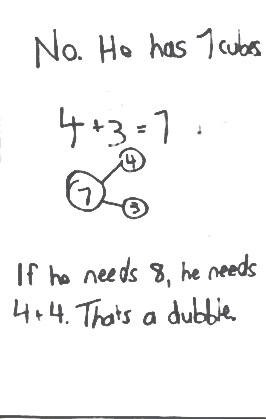 No. He has 7 cubes
4 + 3 = 7 .
4
7
3
If he needs 8, he needs
4+4. That's a dubble.